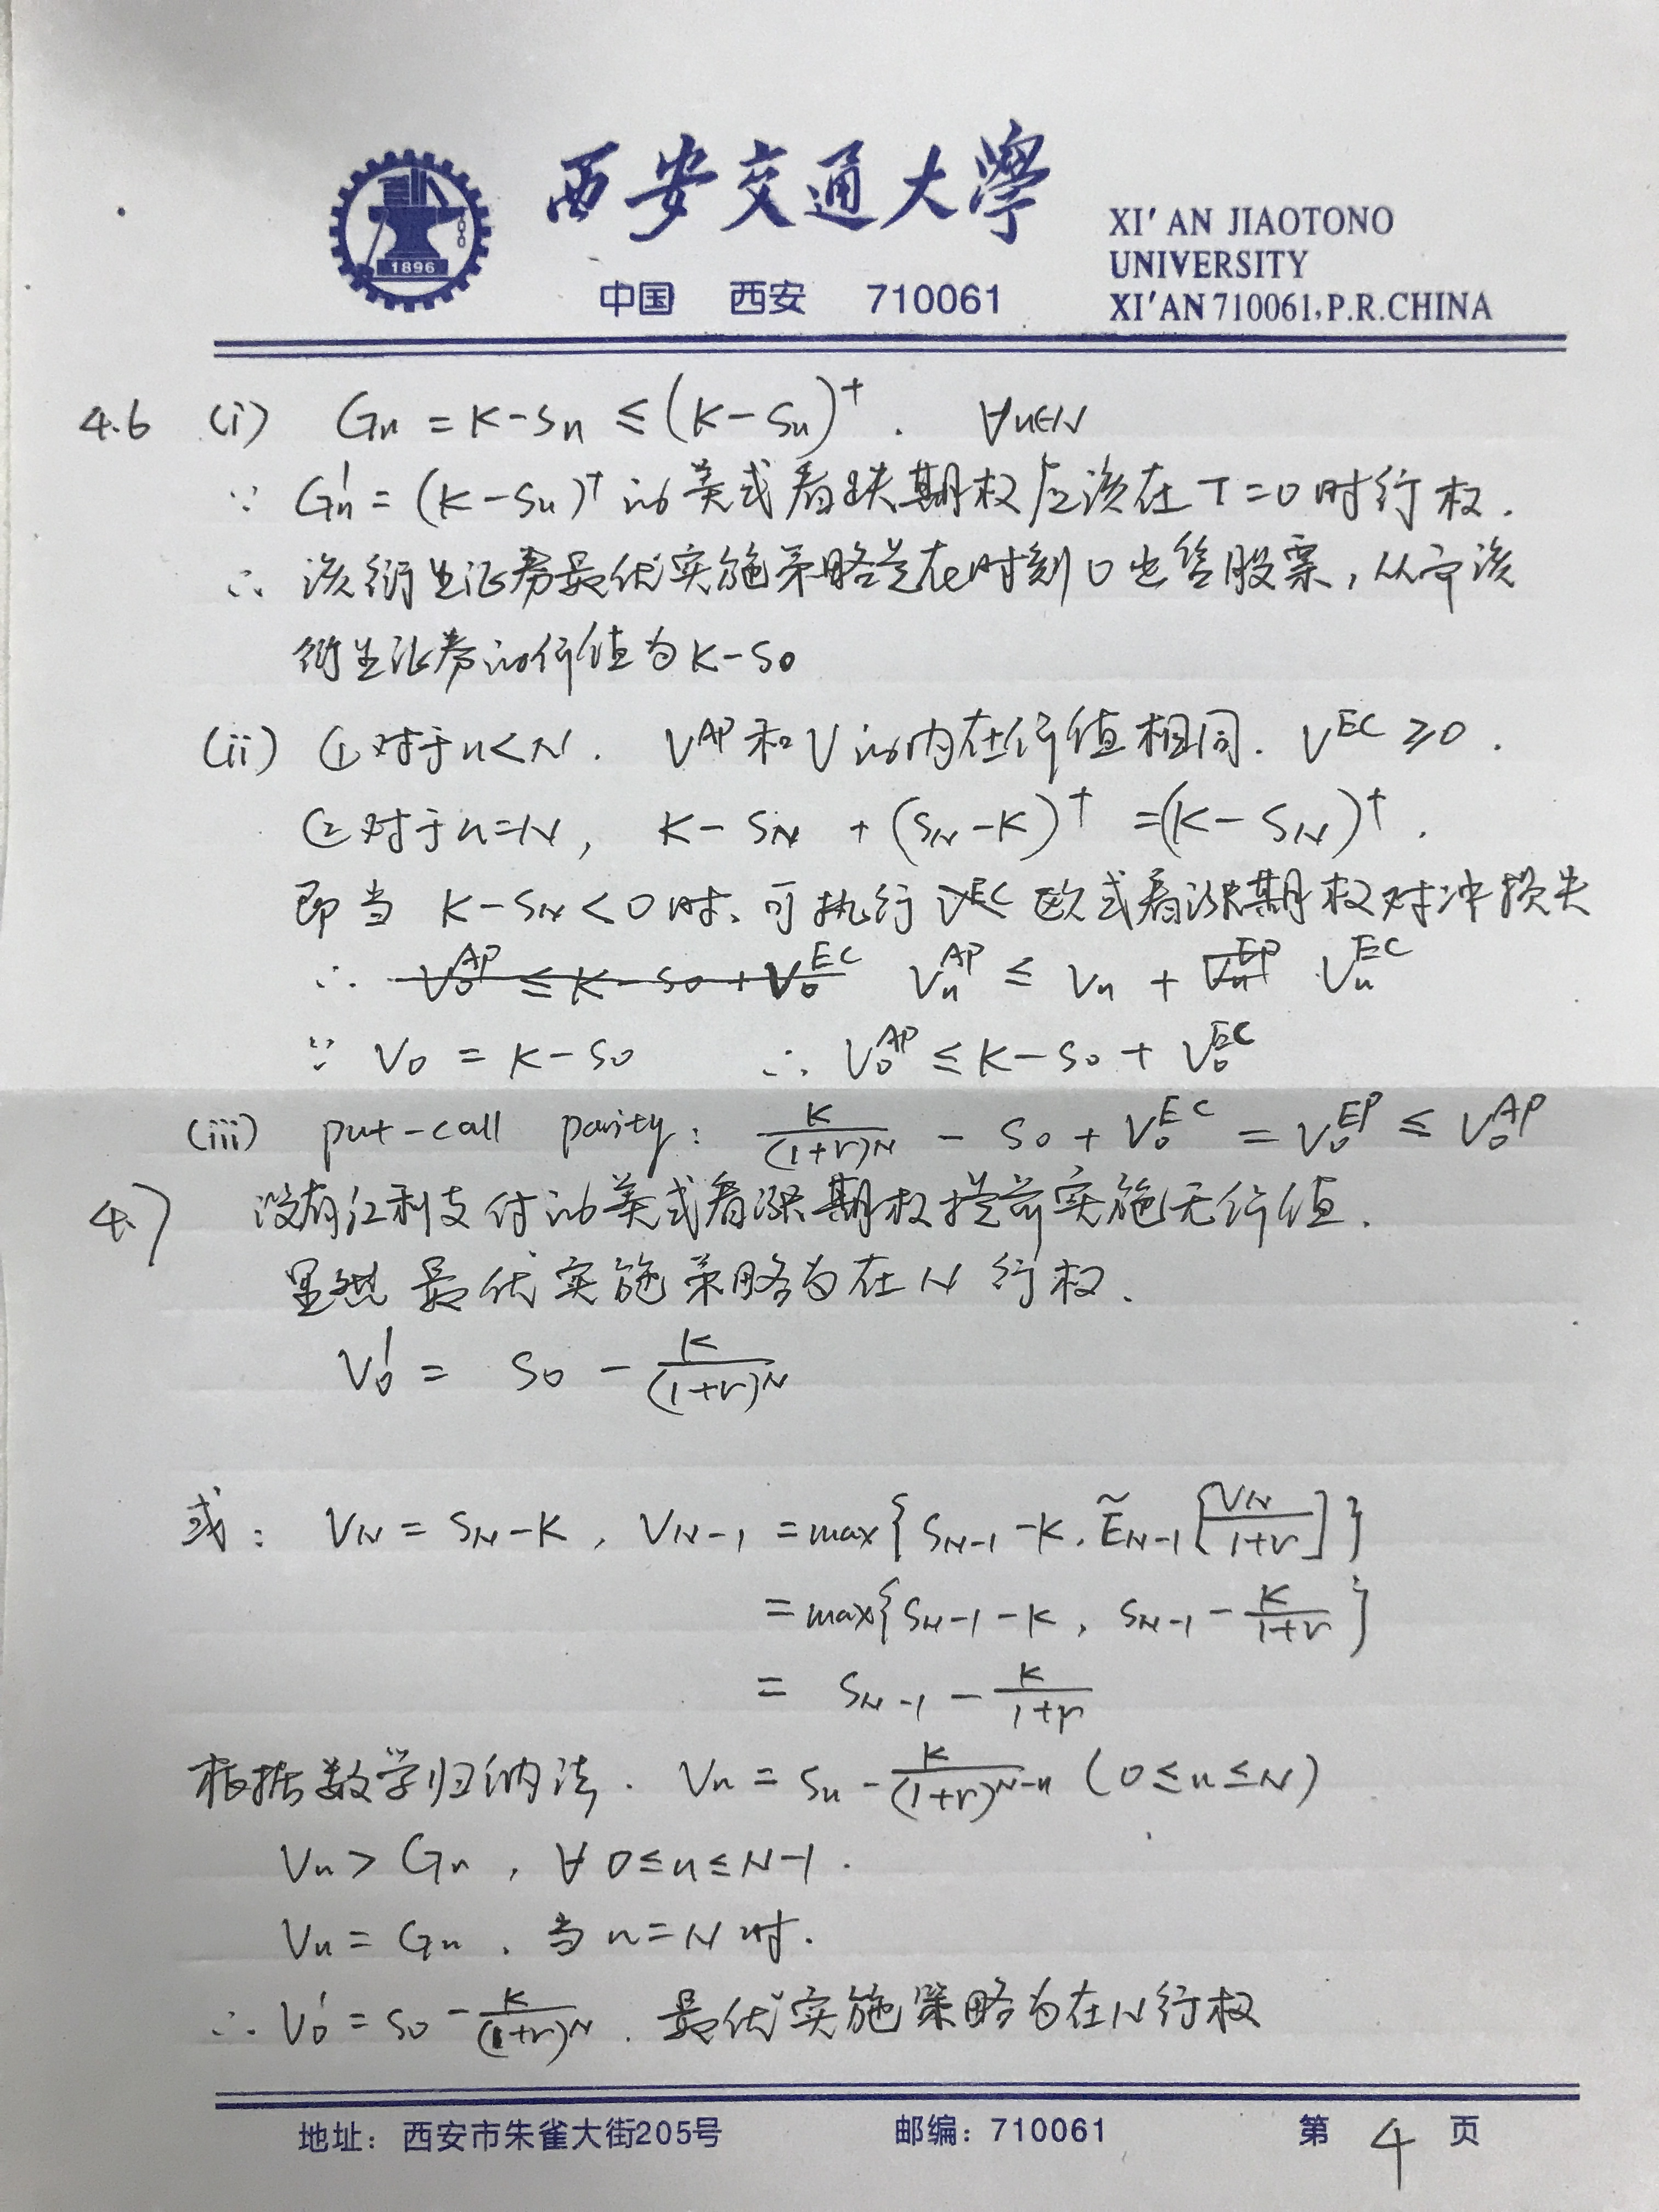 西安交通大學
1896
中国 西安 710061
XI'AN JIAOTONO
UNIVERSITY
XI'AN 710061, P.R.CHINA
4.6 (i) Gn = K-Sn ≤ (K-Sn)⁺. ∀n∈N
∵ Gn' = (K-Sn)⁺ 的美式看跌期权应该在T=0时行权.
∴ 该衍生证券最优实施策略是在时刻0出售股票, 从而该
衍生证券的价值为K-S0
(ii) ①对于n<N. V^AP和V的内在价值相同. V^EC ≥0.
②对于n=N, K-SN + (SN-K)⁺ =(K-SN)⁺.
即当 K-SN<0时、可执行 VEC 欧式看涨期权对冲损失
∴ V0^AP ≤ K-S0+V0^EC Vn^AP ≤ Vn + Vn^EP Vn^EC
∵ V0 = K-S0 ∴ V0^AP ≤ K-S0 + V0^EC
(iii) put-call parity: K/(1+r)^N - S0 + V0^EC = V0^EP ≤ V0^AP
4.7 没有红利支付的美式看涨期权提前实施无价值.
显然最优实施策略为在N行权.
V0' = S0 - K/(1+r)^N
或: VN = SN-K, VN-1 = max{SN-1-K, ẼN-1[VN/1+r]}
= max{SN-1-K, SN-1-K/1+r}
= SN-1 - K/1+r
根据数学归纳法. Vn = Sn - K/(1+r)^N-n (0≤n≤N)
Vn > Gn, ∀ 0≤n≤N-1.
Vn = Gn, 当n=N时.
∴ V0' = S0 - K/(1+r)^N. 最优实施策略为在N行权
地址: 西安市朱雀大街205号 邮编: 710061 第 4 页